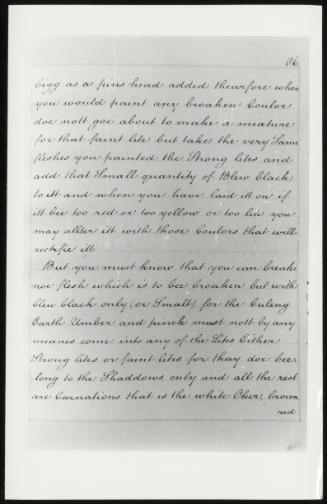 86
bigg as a pins head added thearfore when
you would paint any broaken Coulor
doe nott goe about to make a mixture
for that faint lite but take the very Same
fleshes you painted the Strong lites and
add that Small quantity of Blew black
to itt and when you have laid itt on if
itt bee too red or too yellow or too you
may allter itt with those Coulors that will
rectefie itt.
But you must know that you can breake
noe flesh which is to bee broaken but with
blew black only (or Smalt) for the Culeng
Earth Umber and pinck must nott by any
means come into any of the Lites Either
Strong lites or faint lites for thay doe bee-
long to the Shaddows only and all the rest
are Carnations that is the white Oker, brown
red